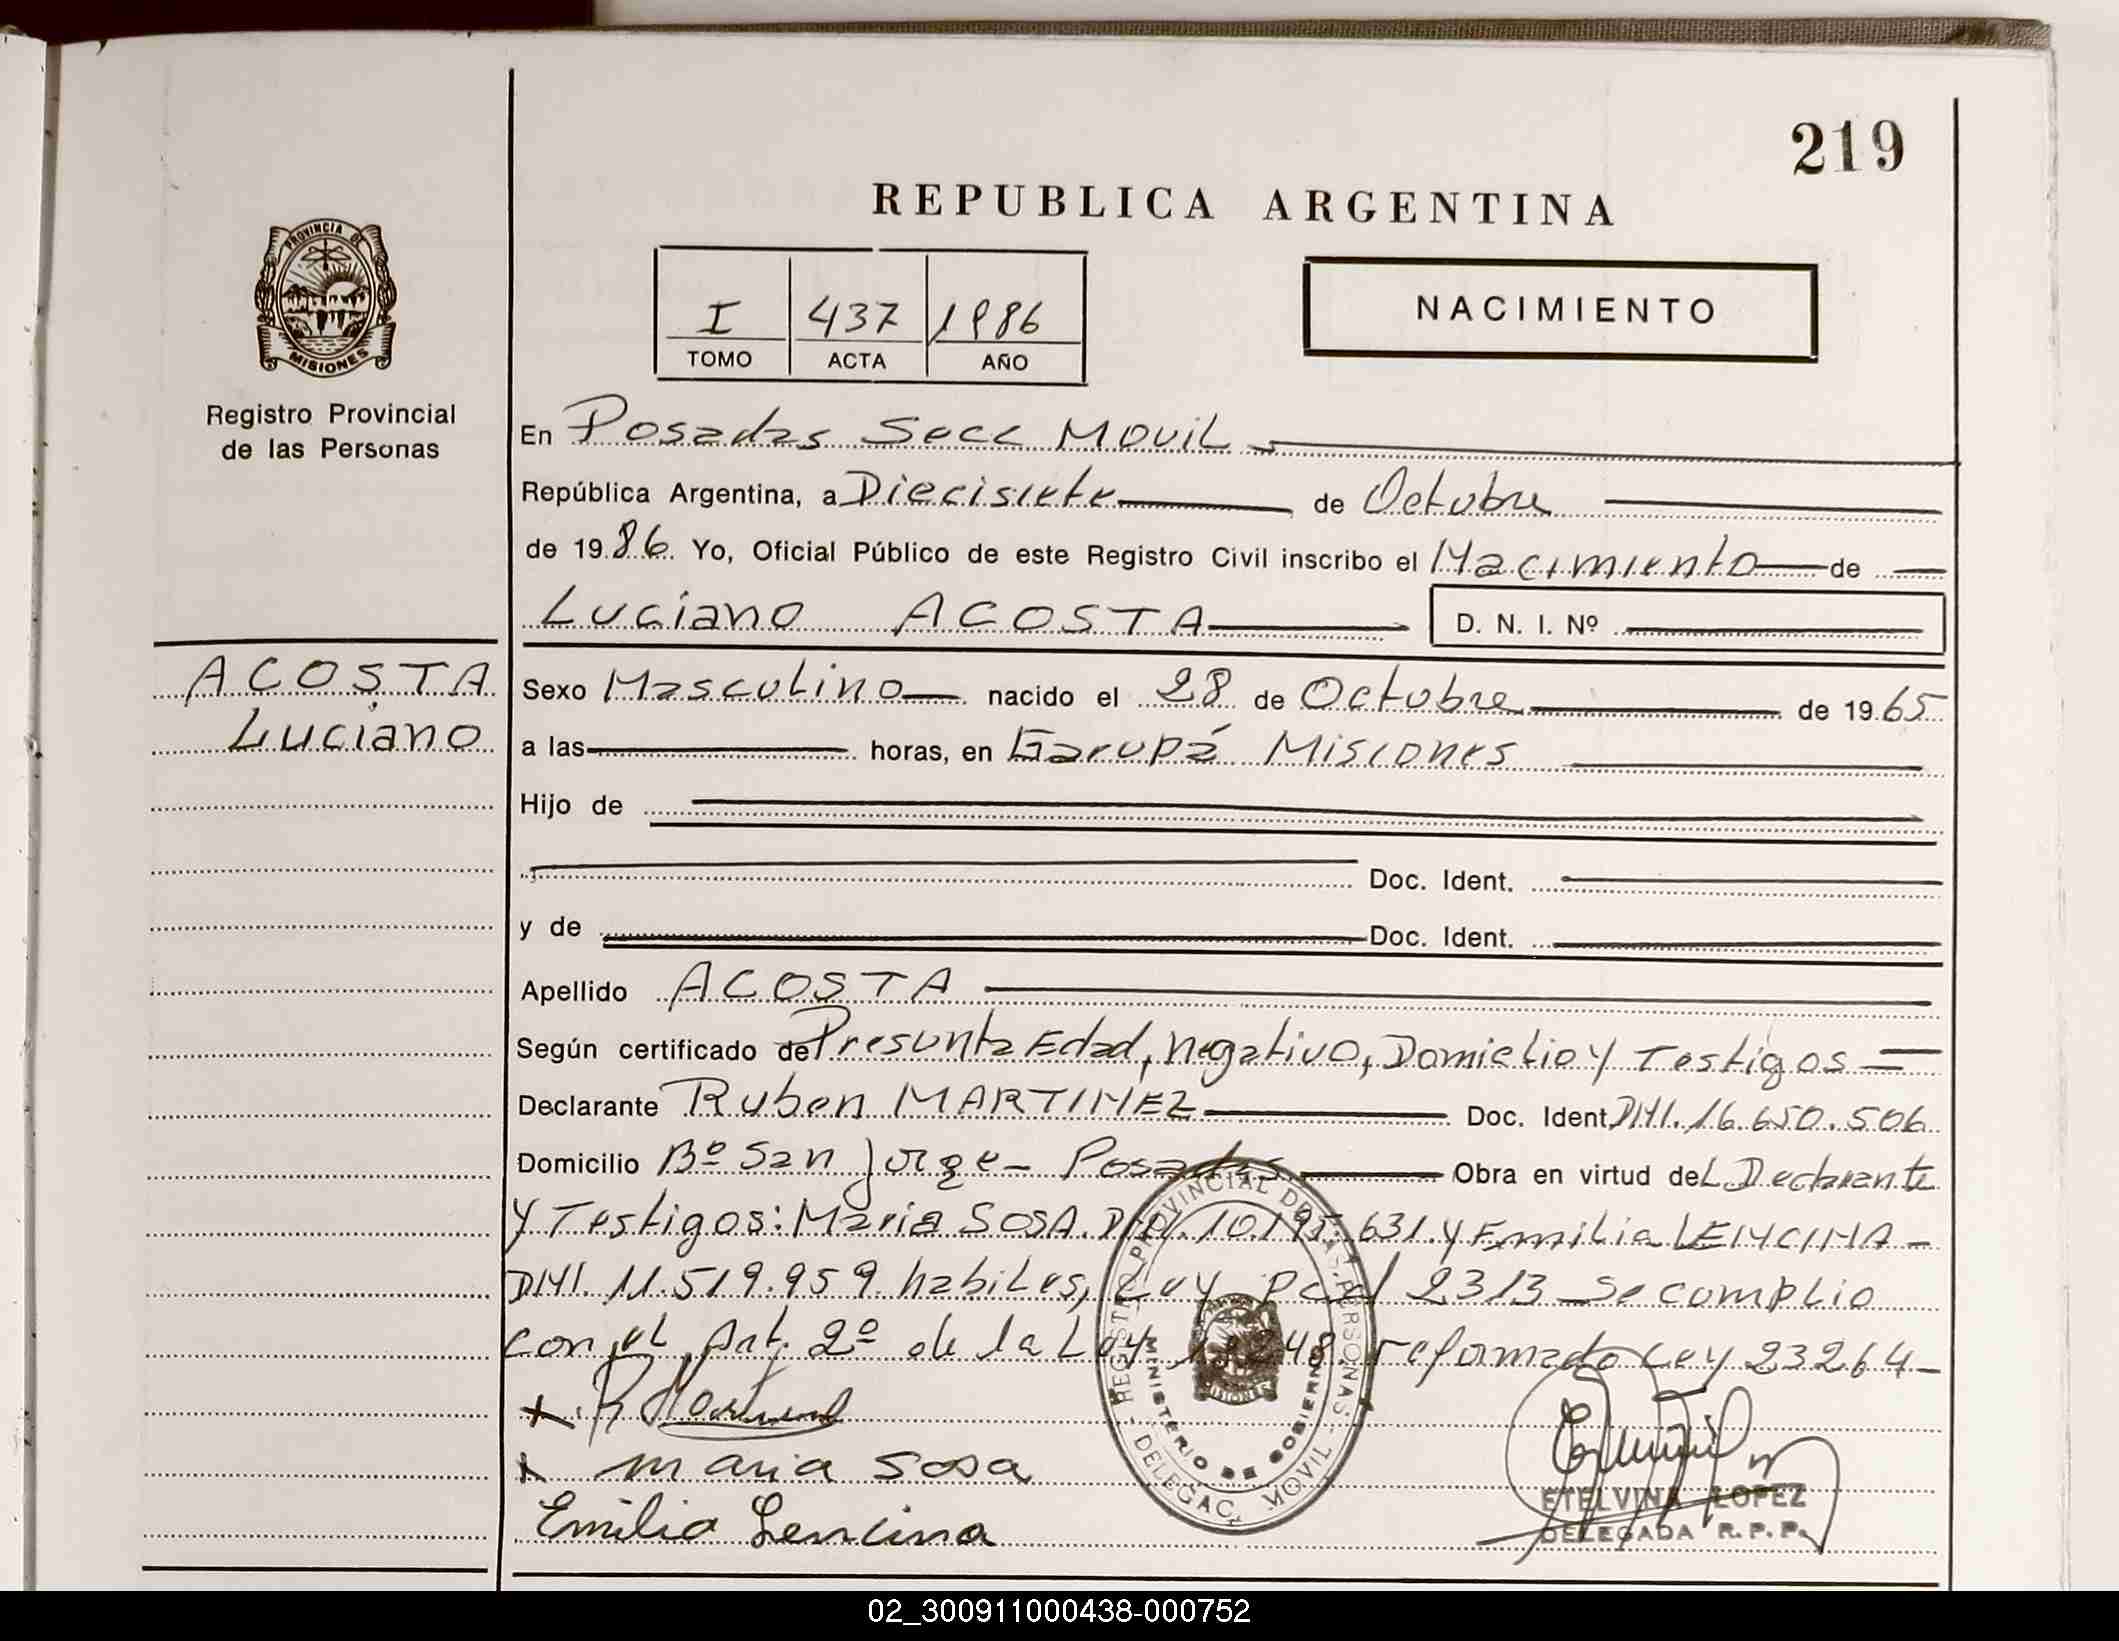 219
REPUBLICA ARGENTINA
PROVINCIA DE
MISIONES
Registro Provincial
de las Personas
I 437 1986
TOMO ACTA AÑO
NACIMIENTO
En Posadas Secc Movil
República Argentina, a Diecisiete de Octubre
de 1986 Yo, Oficial Público de este Registro Civil inscribo el Nacimiento de
Luciano ACOSTA D. N. I. Nº
ACOSTA
Luciano
Sexo Masculino nacido el 28 de Octubre de 1965
a las horas, en Garupá Misiones
Hijo de
Doc. Ident.
y de Doc. Ident.
Apellido ACOSTA
Según certificado de Presunta Edad, negativo, Domicilio y Testigos
Declarante Ruben MARTINEZ Doc. Ident. DNI. 16.650.506
Domicilio Bº San Jorge - Posadas Obra en virtud del Declarante
y Testigos: Maria SOSA. DNI. 10.195.631. y Emilia LENCINA -
DNI. 11.519.959. habiles, Ley Pcial 2313 se complio
con el Art. 2º de la Ley 18248. reformado Ley 23264 -
maria sosa
Emilia Lencina
REGISTRO PROVINCIAL DE LAS PERSONAS
MINISTERIO DE GOBIERNO
DELEGAC. MOVIL
ETELVINA LOPEZ
DELEGADA R. P. P.
02_300911000438-000752